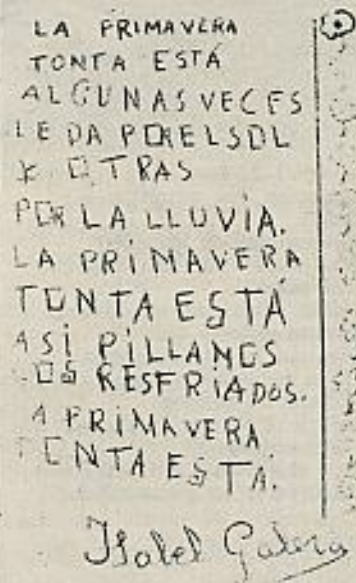 LA PRIMAVERA
TONTA ESTÁ
ALGUNAS VECES
LE DA POR EL SOL
Y OTRAS
POR LA LLUVIA.
LA PRIMAVERA
TONTA ESTÁ
ASÍ PILLAMOS
LOS RESFRIADOS.
A PRIMAVERA
TONTA ESTÁ.
Isabel